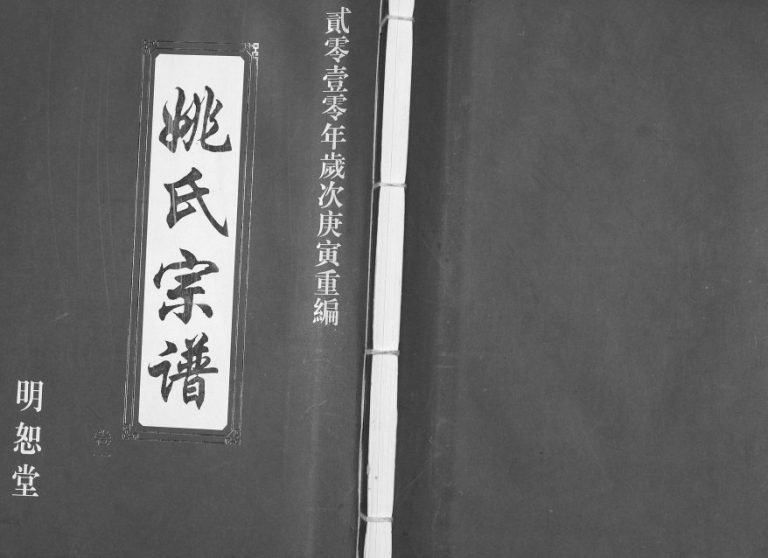 貳零壹零年歲次庚寅重編
姚氏宗谱
明恕堂